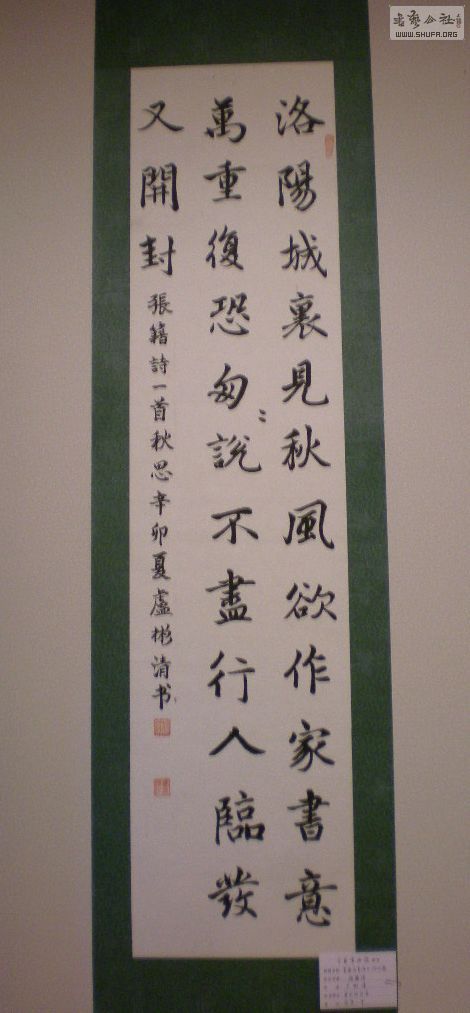 洛陽城裏見秋風欲作家書意
萬重復恐匆〻說不盡行人臨發
又開封
張籍詩一首秋思辛卯夏盧彬清书
WWW.SHUFA.ORG